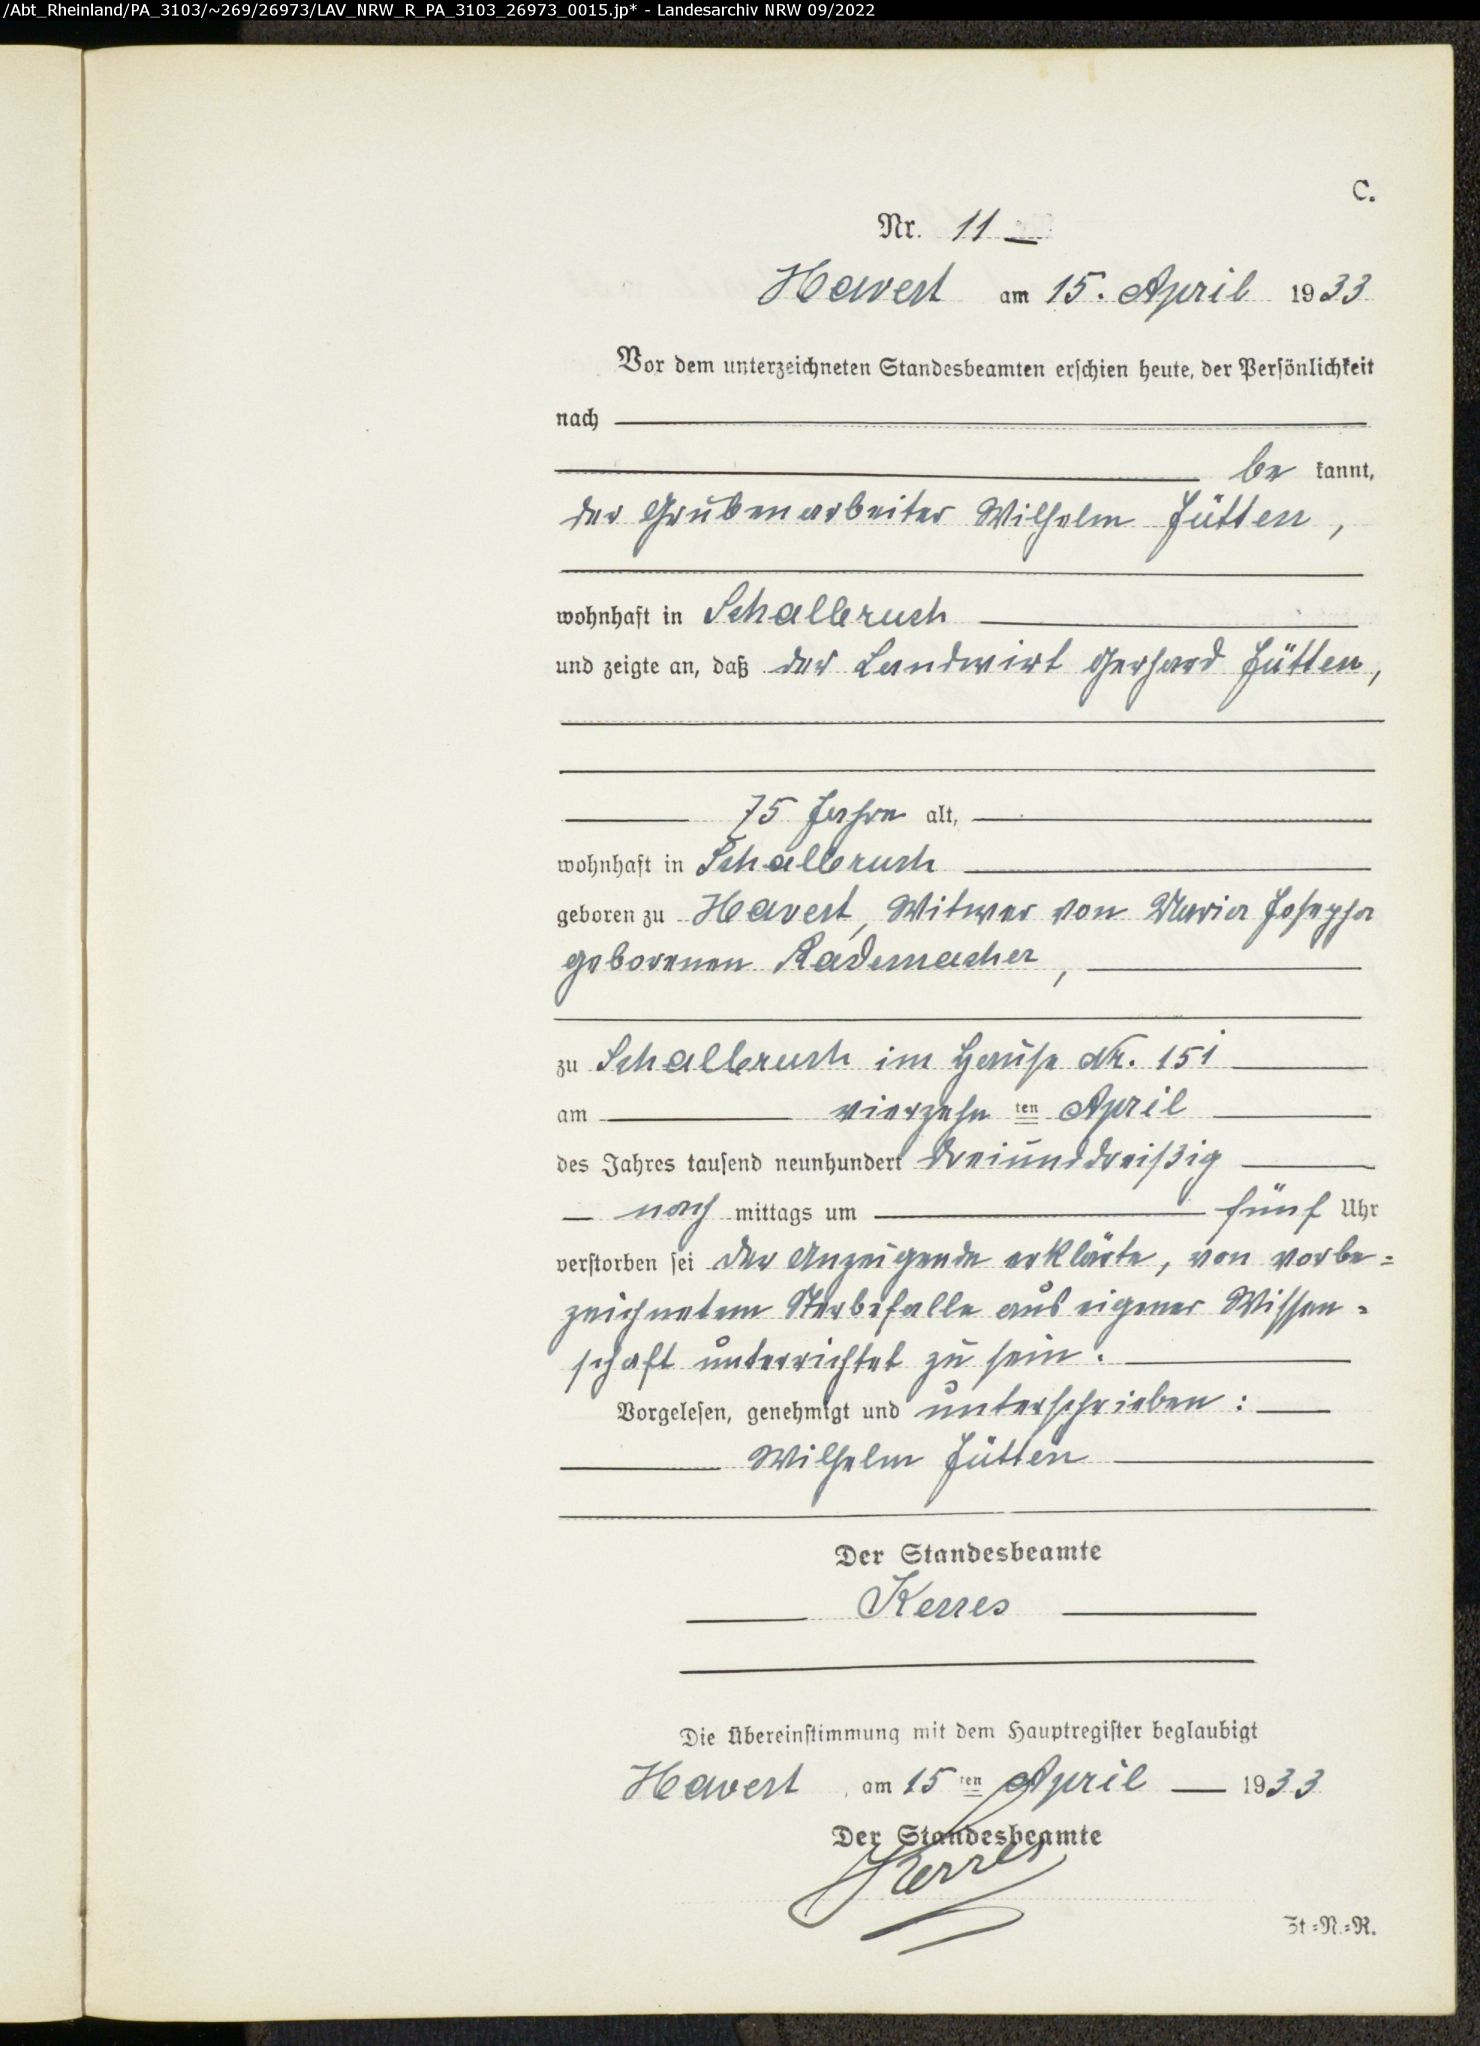 /Abt_Rheinland/PA_3103/~269/26973/LAV_NRW_R_PA_3103_26973_0015.jp* - Landesarchiv NRW 09/2022
C.
Nr. 11
Havert am 15. April 1933
Vor dem unterzeichneten Standesbeamten erschien heute, der Persönlichkeit
nach
be kannt,
der Grubenarbeiter Wilhelm Jütten,
wohnhaft in Schalbruch
und zeigte an, daß der Landwirt Gerhard Jütten,
75 Jahre alt,
wohnhaft in Schalbruch
geboren zu Havert, Witwer von Maria Josepha
geborenen Rademacher,
zu Schalbruch im Hause Nr. 151
am vierzehn ten April
des Jahres tausend neunhundert dreiunddreißig
nach mittags um fünf Uhr
verstorben sei der Anzeigende erklärte, von vorbe=
zeichnetem Sterbefalle aus eigener Wissen=
schaft unterrichtet zu sein.
Vorgelesen, genehmigt und unterschrieben:
Wilhelm Jütten
Der Standesbeamte
Kerres
Die Übereinstimmung mit dem Hauptregister beglaubigt
Havert, am 15 ten April 1933
Der Standesbeamte
Kerres
Zt.=N.=R.